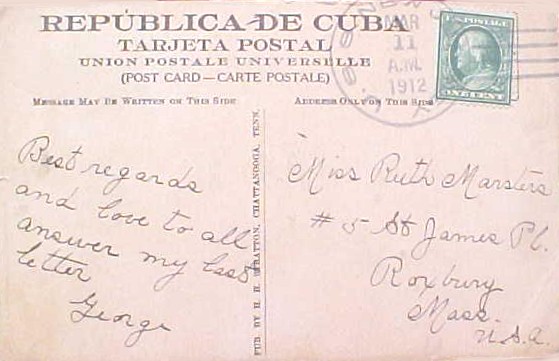 REPÚBLICA DE CUBA
TARJETA POSTAL
UNION POSTALE UNIVERSELLE
(POST CARD—CARTE POSTALE)
MESSAGE MAY BE WRITTEN ON THIS SIDE
ADDRESS ONLY ON THIS SIDE
MAR
11
A.M.
1912
U.S. POSTAGE
ONE CENT
Best regards
and love to all
answer my last
letter
George
PUB. BY H. H. STRATTON, CHATTANOOGA, TENN.
Miss Ruth Marsters
# 5 St James Pl.
Roxbury
Mass.
U.S.A.